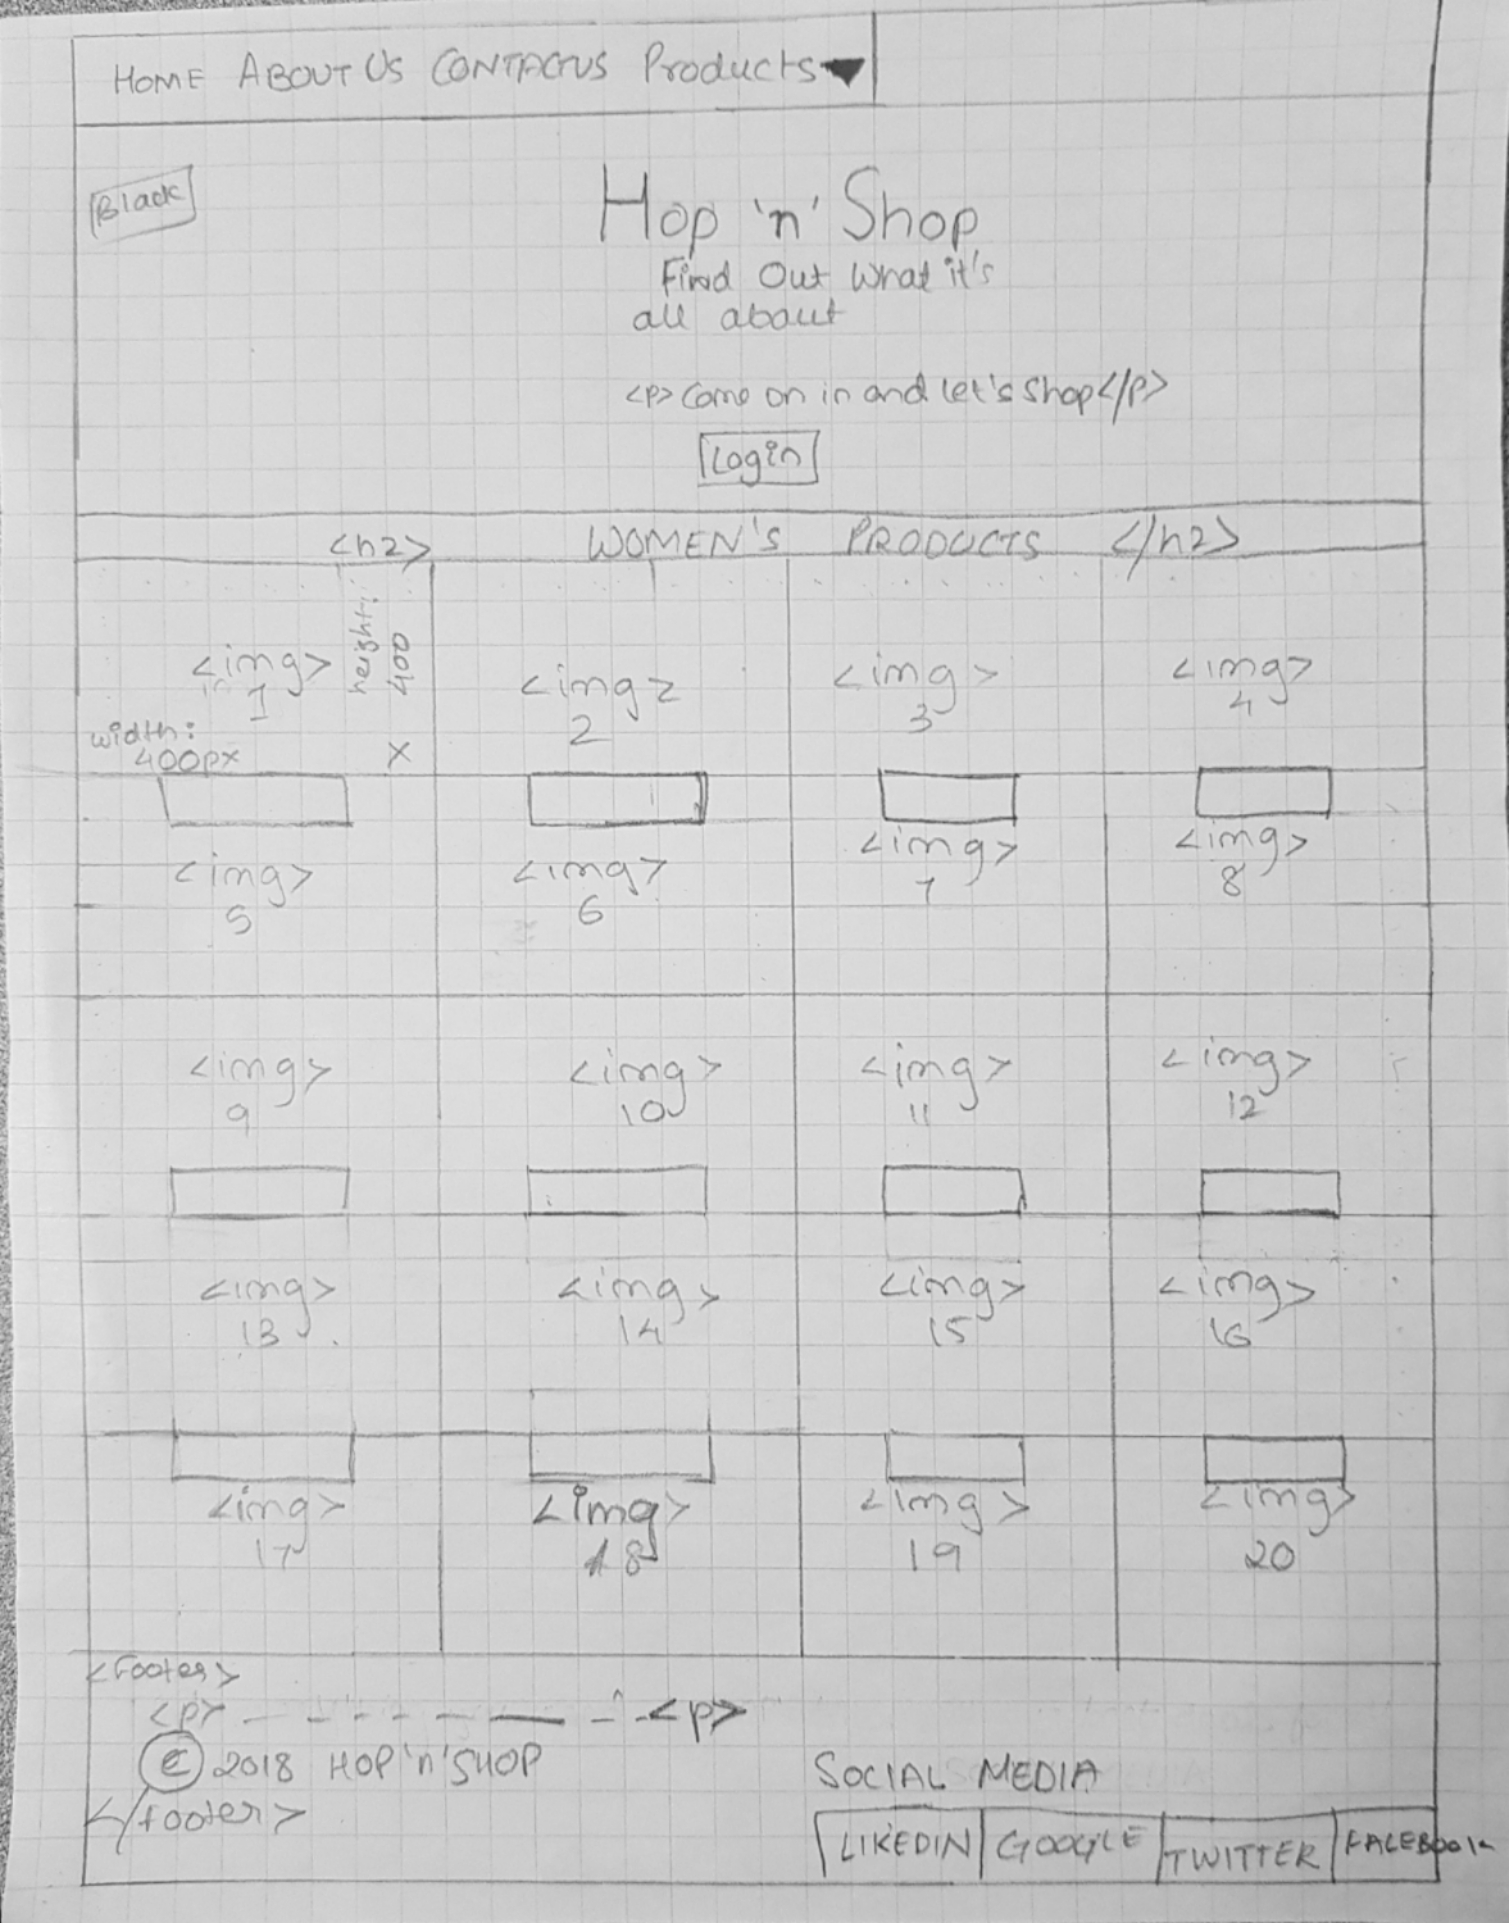 HOME ABOUT US CONTACTUS Products
Black
Hop 'n' Shop
Find Out What it's
all about
<p> Come on in and Let's Shop</p>
Login
<h2> WOMEN'S PRODUCTS </h2>
<img> 1
height: 400
width: 400px X
<img> 2
<img> 3
<img> 4
<img> 5
<img> 6
<img> 7
<img> 8
<img> 9
<img> 10
<img> 11
<img> 12
<img> 13
<img> 14
<img> 15
<img> 16
<img> 17
<img> 18
<img> 19
<img> 20
<Footer>
<p> — — — — — — — <p>
© 2018 HOP 'n' SHOP
</footer>
SOCIAL MEDIA
LIKEDIN GOOGLE TWITTER FACEBOOK